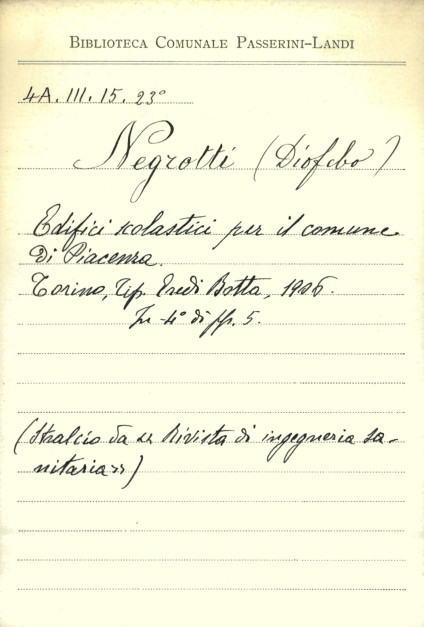 BIBLIOTECA COMUNALE PASSERINI-LANDI
4A. III. 15. 23°
Negrotti (Diofebo)
Edifici scolastici per il comune
di Piacenza.
Torino, Tip. Eredi Botta, 1906.
In-4° di pp. 5.
(Stralcio da << Rivista di ingegneria sa-
nitaria>>)